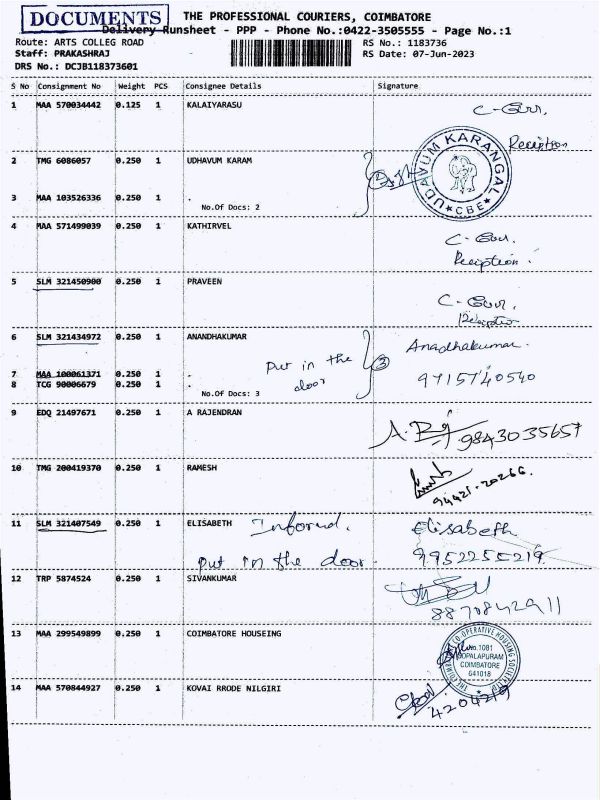 DOCUMENTS
THE PROFESSIONAL COURIERS, COIMBATORE
Delivery Runsheet - PPP - Phone No.:0422-3505555 - Page No.:1
Route: ARTS COLLEG ROAD RS No.: 1183736
Staff: PRAKASHRAJ RS Date: 07-Jun-2023
DRS No.: DCJB118373601
S No Consignment No Weight PCS Consignee Details Signature
1 MAA 570034442 0.125 1 KALAIYARASU
Reception
2 TMG 6086057 0.250 1 UDHAVUM KARAM
UDAVUM KARANGAL
CBE
3 MAA 103526336 0.250 1 .
No.Of Docs: 2
4 MAA 571499039 0.250 1 KATHIRVEL
Reception.
5 SLM 321450900 0.250 1 PRAVEEN
6 SLM 321434972 0.250 1 ANANDHAKUMAR Anadhakumar.
Put in the door 3
7 MAA 100061371 0.250 1 . 9715740540
8 TCG 90006679 0.250 1 .
No.Of Docs: 3
9 EDQ 21497671 0.250 1 A RAJENDRAN
9843035657
10 TMG 200419370 0.250 1 RAMESH
94421-20266.
11 SLM 321407549 0.250 1 ELISABETH Informd. Elisabeth
put in the door. 9952255219
12 TRP 5874524 0.250 1 SIVANKUMAR
8870842911
13 MAA 299549899 0.250 1 COIMBATORE HOUSEING
CO OPERATIVE HOUSING SOCIETY
No.1081
GOPALAPURAM
COIMBATORE
641018
14 MAA 570844927 0.250 1 KOVAI RRODE NILGIRI